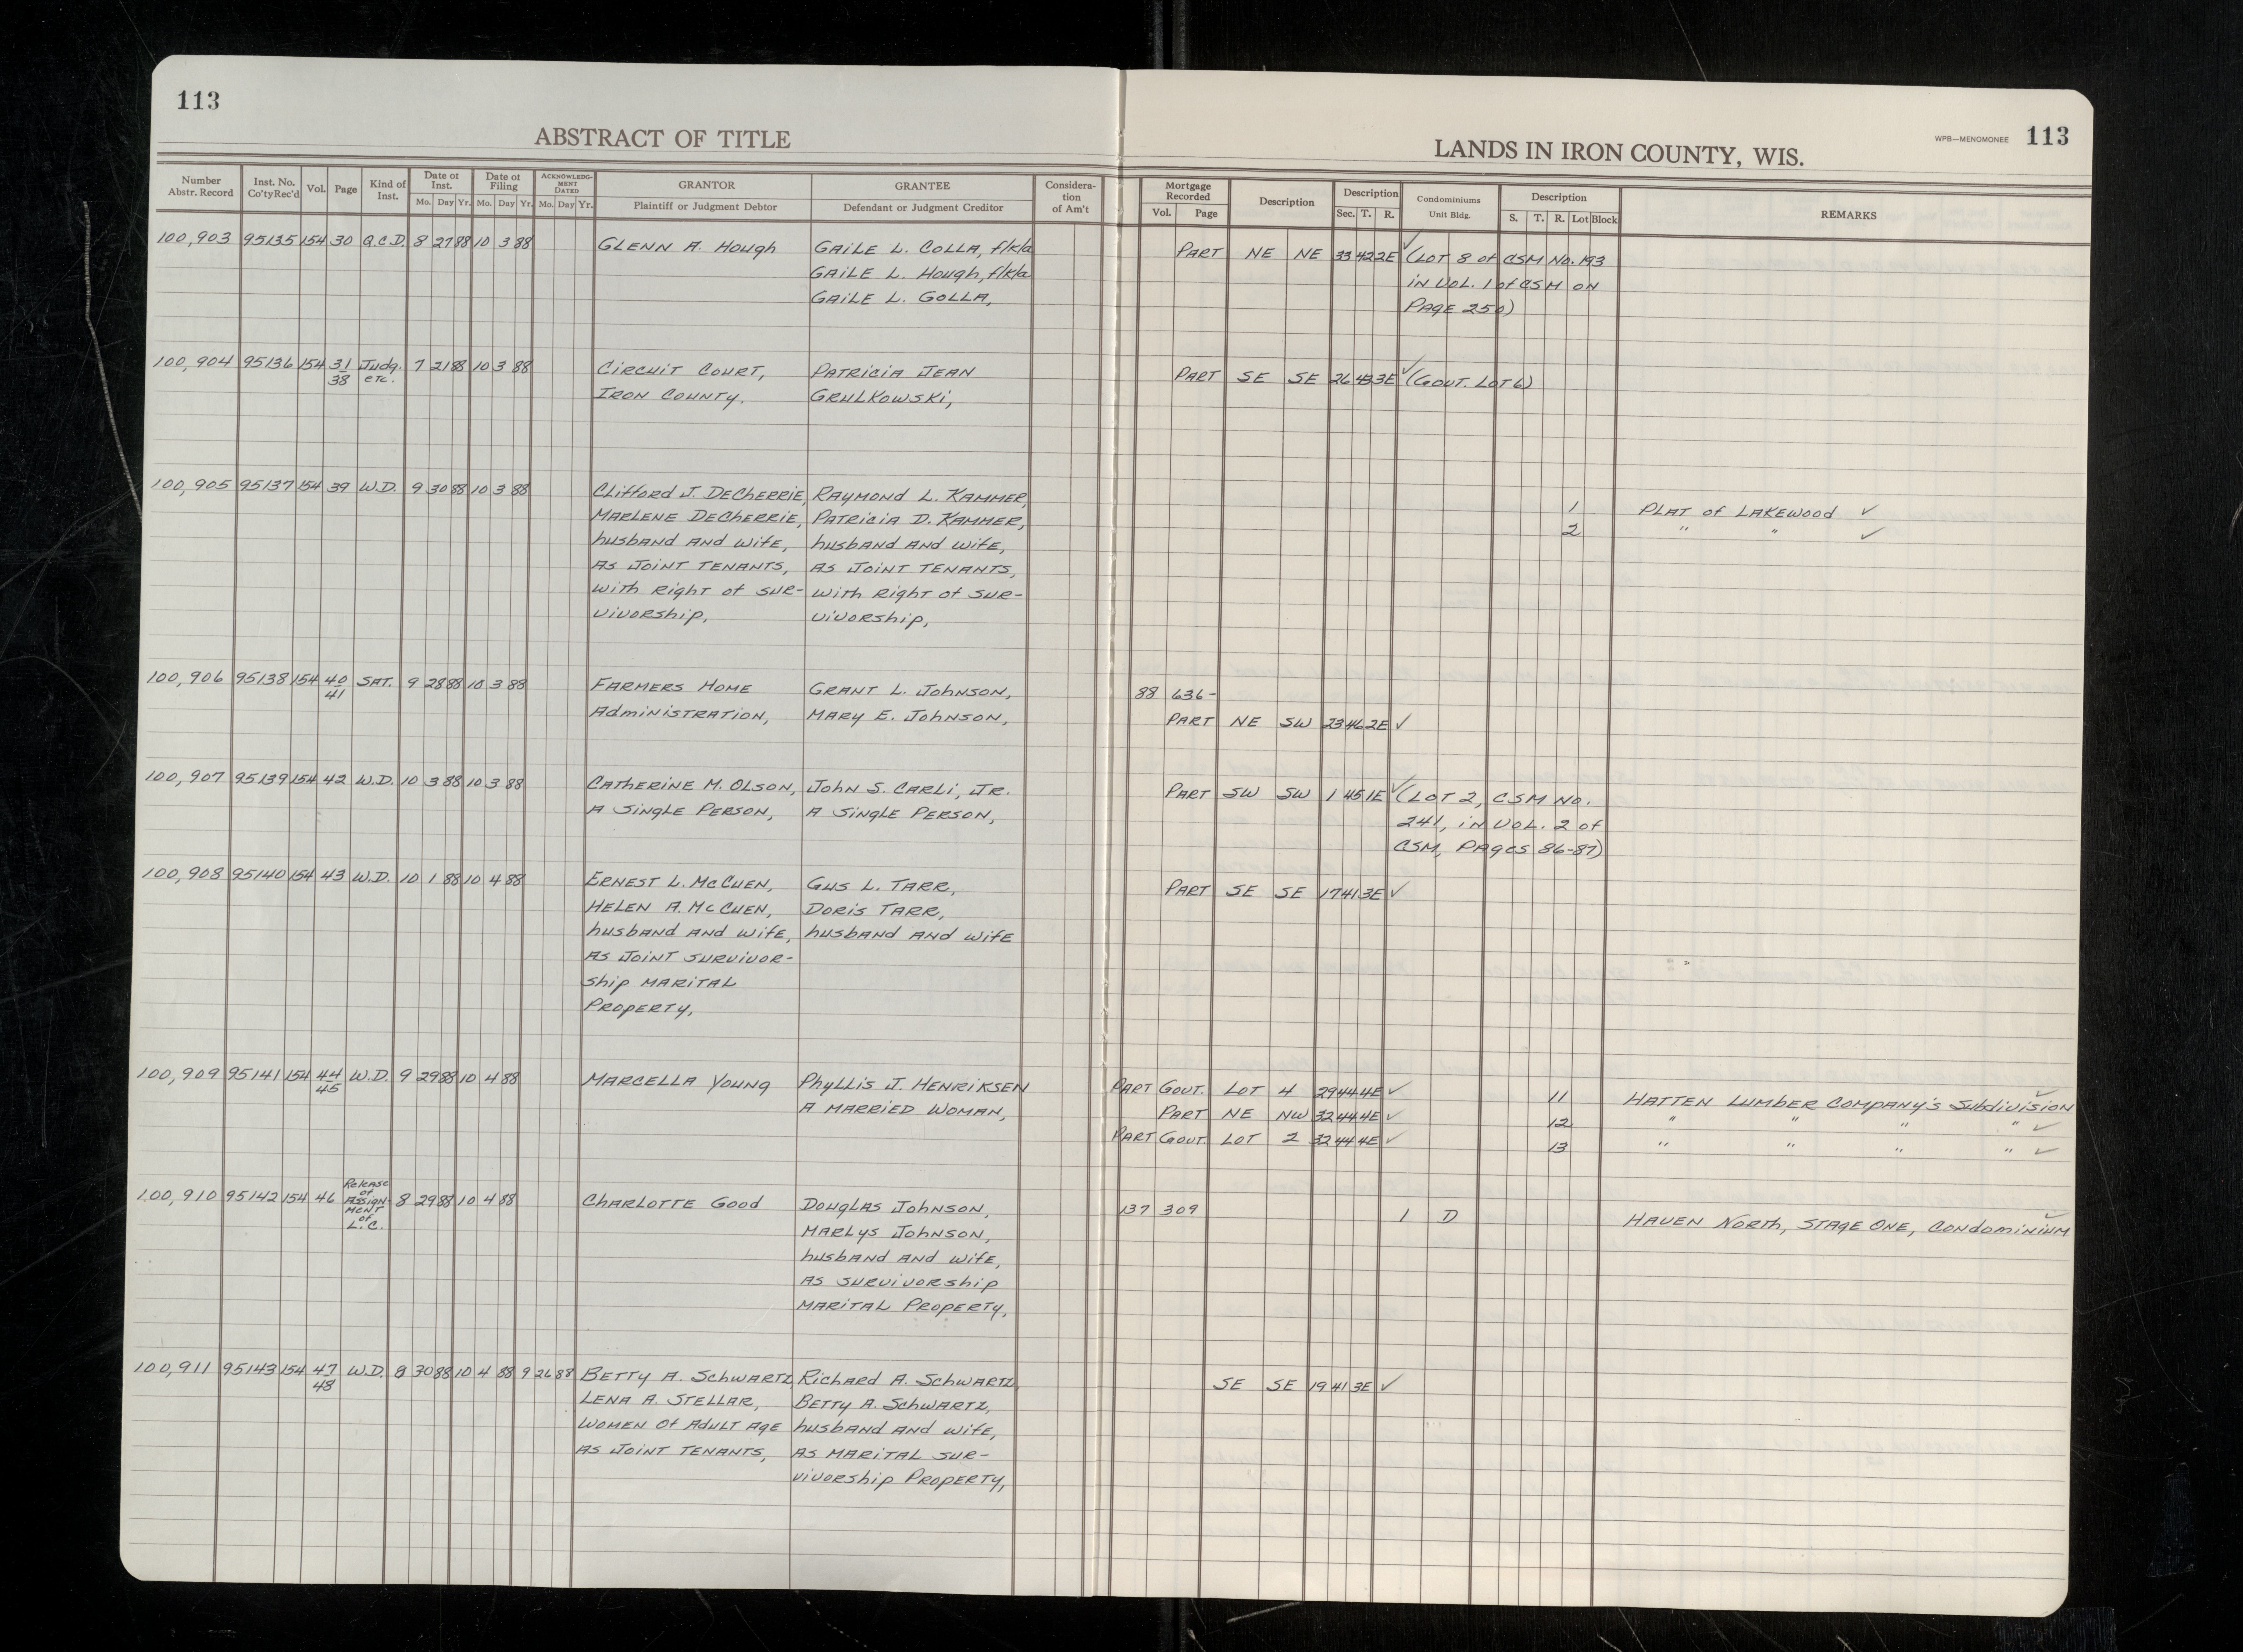 113
ABSTRACT OF TITLE
LANDS IN IRON COUNTY, WIS.
WPB—MENOMONEE 113
Number Abstr. Record
Inst. No. Co'tyRec'd
Vol.
Page
Kind of Inst.
Date of Inst.
Mo. Day Yr.
Date of Filing
Mo. Day Yr.
ACKNOWLEDG-MENT DATED
Mo. Day Yr.
GRANTOR
Plaintiff or Judgment Debtor
GRANTEE
Defendant or Judgment Creditor
Considera-tion of Am't
Mortgage Recorded
Vol. Page
Description
Description
Sec. T. R.
Condominiums
Unit Bldg.
Description
S. T. R. Lot Block
REMARKS
100,903 95135 154 30 Q.C.D. 8 27 88 10 3 88 GLENN A. Hough GAiLE L. COLLA, f/k/a PART NE NE 33 42 2E ✓ (LOT 8 of CSM No. 193
GAiLE L. Hough, f/k/a iN VOL. 1 of CSM ON
GAiLE L. GOLLA, PAGE 250)
100,904 95136 154 31 Judg. 7 21 88 10 3 88 CiRCUiT COURT, PATRiCiA JEAN PART SE SE 26 43 3E ✓ (GOVT. LOT 6)
38 etc. IRON COUNTY. GRULKOWSKi,
100,905 95137 154 39 W.D. 9 30 88 10 3 88 CLifford J. DeCHERRiE, RAYMOND L. KAMMER, 1 PLAT of LAKEWOOD ✓
MARLENE DeCHERRiE, PATRiCiA D. KAMMER, 2 " " ✓
husband AND wife, husband AND wife,
AS JOiNT TENANTS, AS JOiNT TENANTS,
with Right of SUR- with Right of SUR-
ViVORship, ViVORship,
100,906 95138 154 40 SAT. 9 28 88 10 3 88 FARMERS HOME GRANT L. JOHNSON, 88 636-
41 AdmiNiSTRATiON, MARY E. JOHNSON, PART NE SW 23 46 2E ✓
100,907 95139 154 42 W.D. 10 3 88 10 3 88 CATHERiNE M. OLSON, JOHN S. CARLi, JR. PART SW SW 1 45 1E ✓ (LOT 2, CSM NO.
A SiNGLE PERSON, A SiNGLE PERSON, 241, iN VOL. 2 of
CSM, PAGES 86-87)
100,908 95140 154 43 W.D. 10 1 88 10 4 88 ERNEST L. McCUEN, GUS L. TARR, PART SE SE 17 41 3E ✓
HELEN A. McCUEN, DORiS TARR,
husband AND wife, husband AND wife
AS JOiNT SURViVOR-
ship MARiTAL
PROPERTY,
100,909 95141 154 44 W.D. 9 29 88 10 4 88 MARCELLA YOUNG PhyLLiS J. HENRiKSEN PART GOVT. LOT 4 29 44 4E ✓ 11 HATTEN LUMBER COMPANY'S SubdiViSiON ✓
45 A MARRiED WOMAN, PART NE NW 32 44 4E ✓ 12 " " " " ✓
PART GOVT. LOT 2 32 44 4E ✓ 13 " " " " ✓
100,910 95142 154 46 Release of ASSiGN-MENT of L.C. 8 29 88 10 4 88 CHARLOTTE GOOD DOUGLAS JOHNSON, 137 309 1 D HAVEN NORTH, STAGE ONE, CONdOMiNiUM ✓
MARLYS JOHNSON,
husband AND wife,
AS SURViVORship
MARiTAL PROPERTY,
100,911 95143 154 47 W.D. 8 30 88 10 4 88 9 26 88 BETTY A. SchWARTZ, RichARd A. SchWARTZ, SE SE 19 41 3E ✓
48 LENA A. STELLAR, BETTY A. SchWARTZ,
WOMEN Of AdULT AGE husband AND wife,
AS JOiNT TENANTS, AS MARiTAL SUR-
ViVORship PROPERTY,